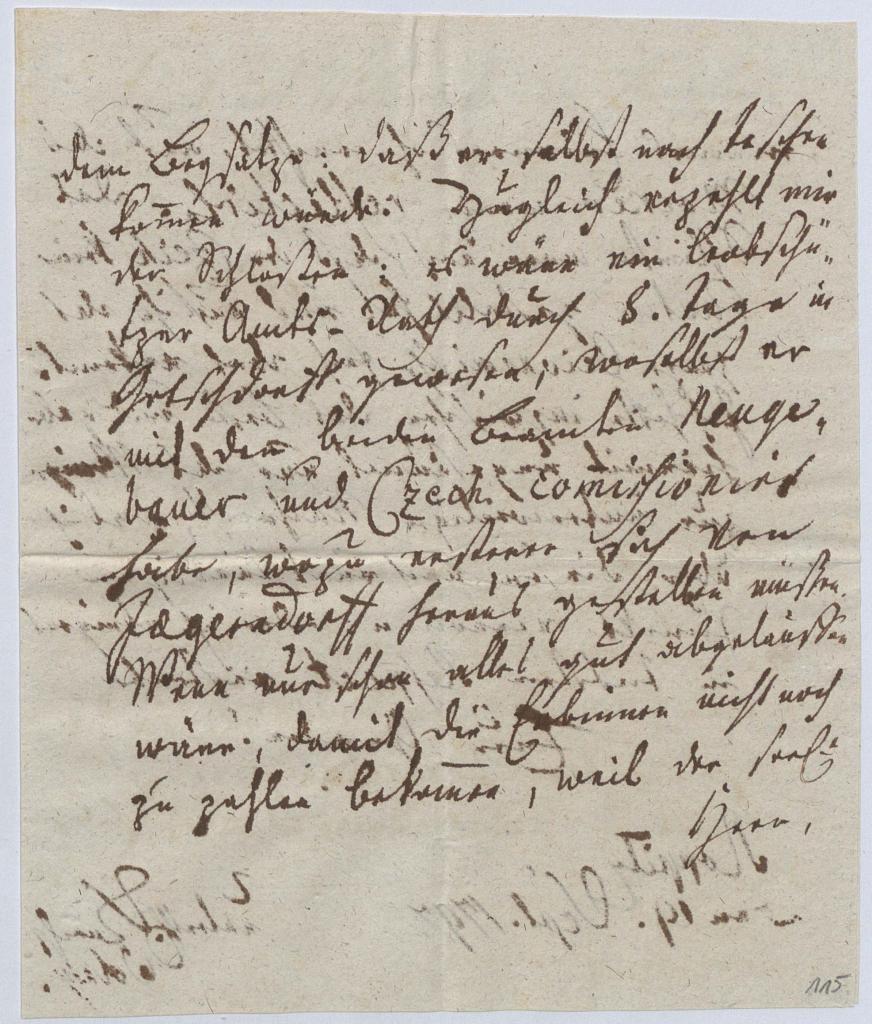 dem Beysatze: daß er selbst nach Teschen
kom̅en würde. Zugleich erzehlt mir
der Schloßer: es wäre ein Leobschü„
tzer Amts-Rath durch 8. Tage in
Gotschdorff gewesen, woselbst er
mit den beiden Beamten Neuge„
bauer und Czech com̅issioniert
habe, wozu ersterer sich von
Jægerndorff heraus gestellen müßen.
Wenn nur schon alles gut abgelauffen
wäre, damit die Erbinnen nicht noch
zu zahlen bekom̅en, weil der seel:
Herr,
115